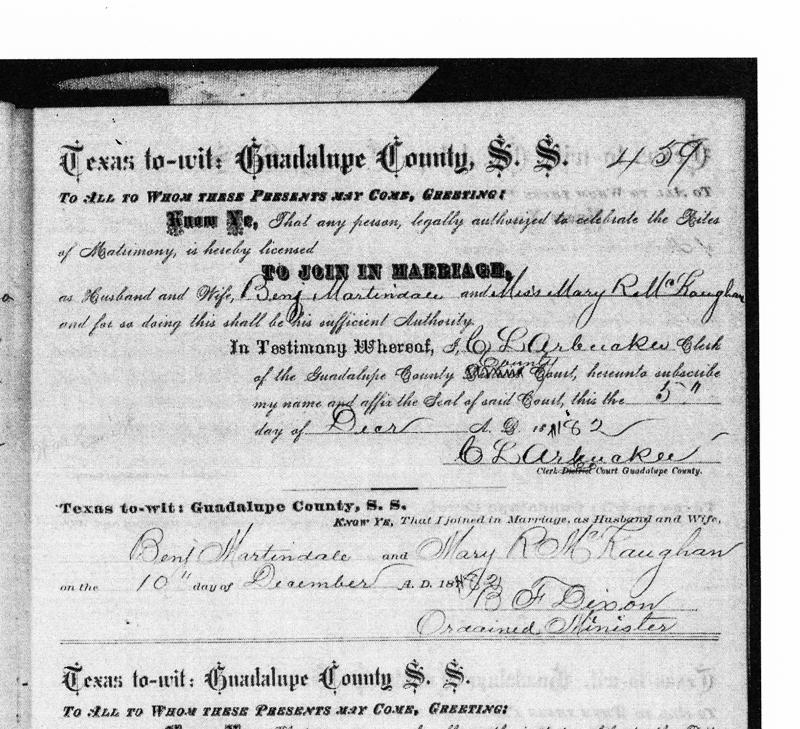 Texas to-wit: Guadalupe County, S. S. 459
To All to Whom these Presents may Come, Greeting:
Know Ye, That any person, legally authorized to celebrate the Rites
of Matrimony, is hereby licensed
TO JOIN IN MARRIAGE,
as Husband and Wife, Benj Martindale and Miss Mary R McKaughan
and for so doing this shall be his sufficient Authority.
In Testimony Whereof, I, C L Arbuckle Clerk
of the Guadalupe County County Court, hereunto subscribe
my name and affix the Seal of said Court, this the 5"
day of Decr A. D. 1882
C L Arbuckle
Clerk District Court Guadalupe County.
Texas to-wit: Guadalupe County, S. S.
Know Ye, That I joined in Marriage, as Husband and Wife,
Benj Martindale and Mary R McKaughan
on the 10" day of December A. D. 1882
B F Dixon
Ordained Minister
Texas to-wit: Guadalupe County S. S.
To All to Whom these Presents may Come, Greeting: